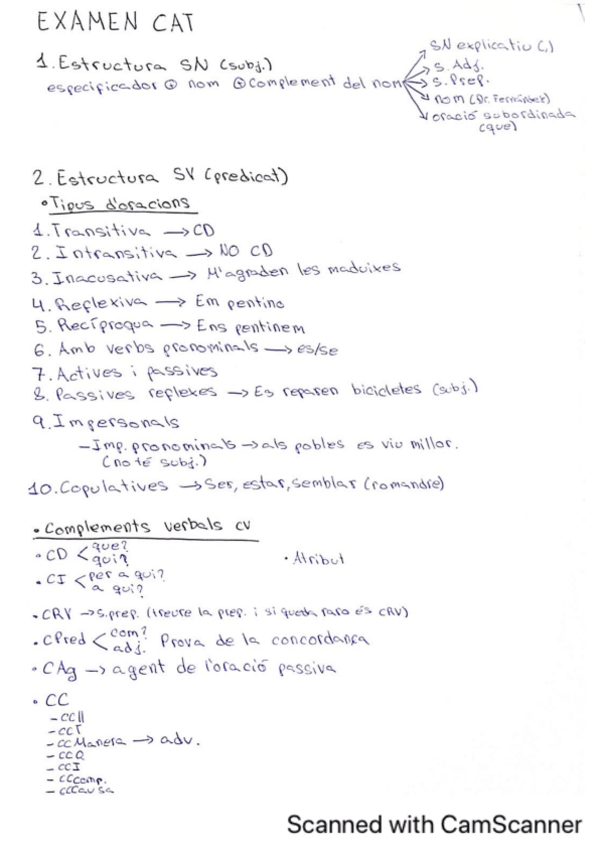 EXAMEN CAT
1. Estructura SN (subj.)
especificador ⊕ nom ⊕ Complement del nom
SN explicatiu (,)
S. Adj.
S. Prep.
nom (Dr. Fernández)
oració subordinada
(que)
2. Estructura SV (predicat)
• Tipus d'oracions
1. Transitiva → CD
2. Intransitiva → NO CD
3. Inacusativa → M'agraden les maduixes
4. Reflexiva → Em pentino
5. Recíproqua → Ens pentinem
6. Amb verbs pronominals → es/se
7. Actives i passives
8. Passives reflexes → Es reparen bicicletes (subj.)
9. Impersonals
- Imp. pronominals → als pobles es viu millor.
(no té subj.)
10. Copulatives → Ser, estar, semblar (romandre)
• Complements verbals CV
• CD < que?
qui?
• Atribut
• CI < per a qui?
a qui?
• CRV → S.prep. (treure la prep. i si queda raro és CRV)
• CPred < com?
adj. Prova de la concordança
• CAg → agent de l'oració passiva
• CC
- CCll
- CCT
- CCManera → adv.
- CCQ
- CCI
- CCcomp.
- CCCausa
Scanned with CamScanner